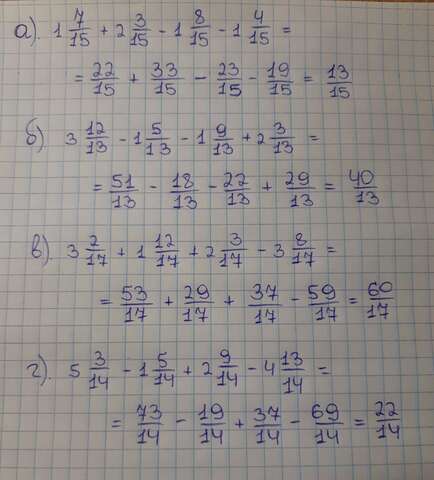 а). 1 7/15 + 2 3/15 - 1 8/15 - 1 4/15 =
= 22/15 + 33/15 - 23/15 - 19/15 = 13/15
б) 3 12/13 - 1 5/13 - 1 9/13 + 2 3/13 =
= 51/13 - 18/13 - 22/13 + 29/13 = 40/13
в) 3 2/17 + 1 12/17 + 2 3/17 - 3 8/17 =
= 53/17 + 29/17 + 37/17 - 59/17 = 60/17
г). 5 3/14 - 1 5/14 + 2 9/14 - 4 13/14 =
= 73/14 - 19/14 + 37/14 - 69/14 = 22/14